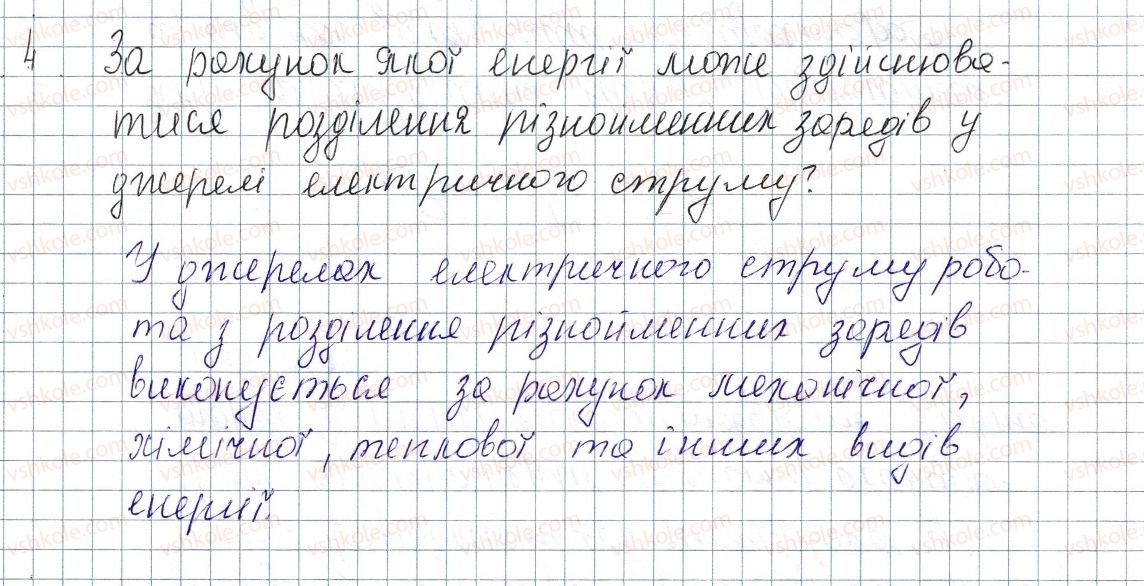 4 За рахунок якої енергії може здійснюва-
тися розділення різнойменних зарядів у
джерелі електричного струму?
У джерелах електричного струму робо-
та з розділення різнойменних зарядів
виконується за рахунок механічної,
хімічної, теплової та інших видів
енергії.